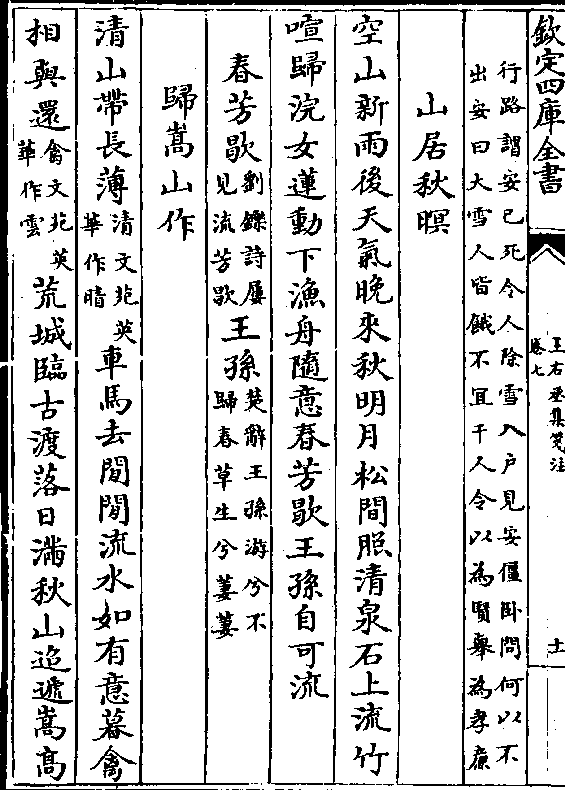 欽定四庫全書
王右丞集箋注
卷七
十一
行路謂安已死令人除雪入户見安僵臥問何以不
出安曰大雪人皆餓不宜干人令以為賢舉為孝廉
山居秋暝
空山新雨後天氣晚來秋明月松間照清泉石上流竹
喧歸浣女蓮動下漁舟隨意春芳歇王孫自可流
春芳歇劉鑠詩屢見流芳歇王孫楚辭王孫游兮不歸春草生兮萋萋
歸嵩山作
清山帶長薄清文苑英華作晴車馬去閒閒流水如有意暮禽
相與還禽文苑英華作雲荒城臨古渡落日滿秋山迢遞嵩高